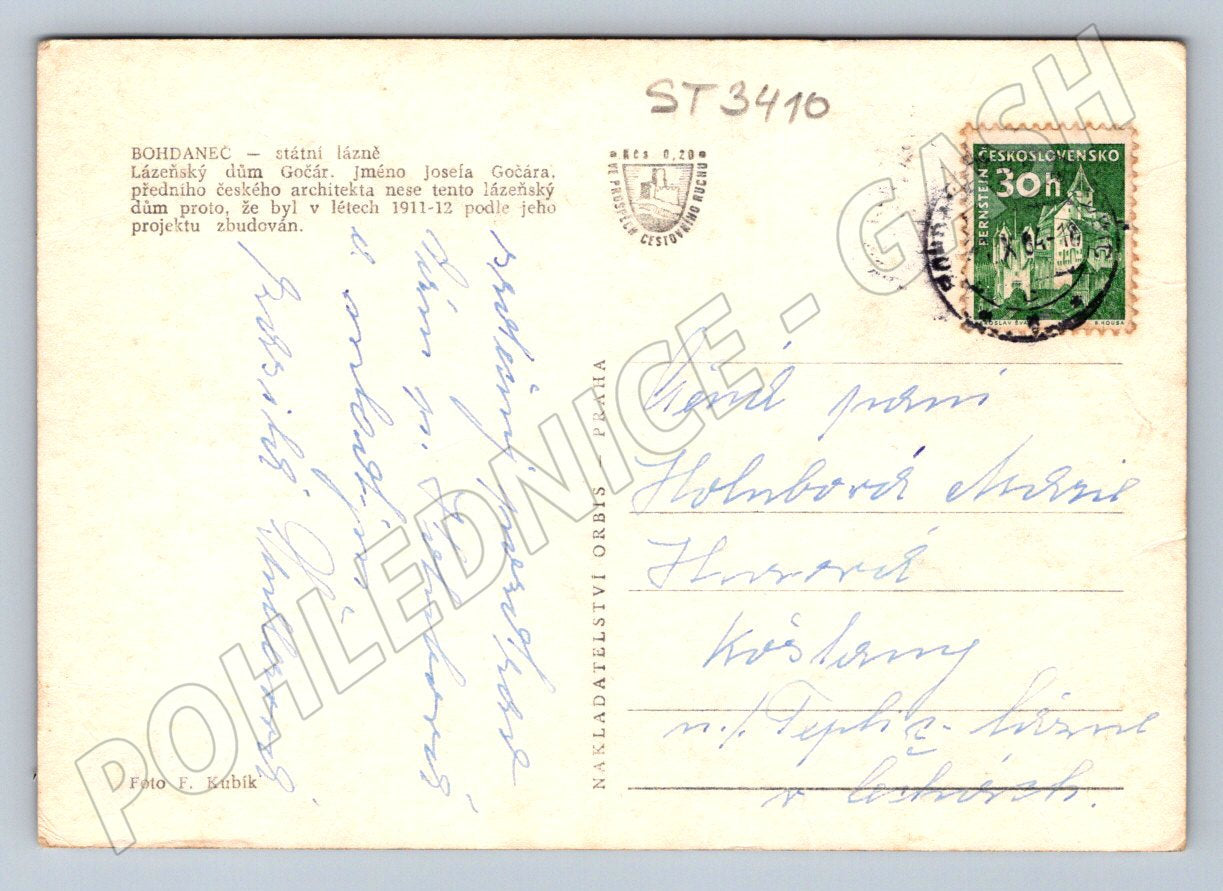 ST 3410
BOHDANEČ — státní lázně
Lázeňský dům Gočár. Jméno Josefa Gočára,
předního českého architekta nese tento lázeňský
dům proto, že byl v létech 1911-12 podle jeho
projektu zbudován.
Kčs 0,20
VE PROSPĚCH CESTOVNÍHO RUCHU
ČESKOSLOVENSKO
30h
PERNŠTEJN
B. HOUSA
Srdečný pozdrav
Vám p. Holubová
a
Mullerová
NAKLADATELSTVÍ ORBIS — PRAHA
Vážená paní
Holubová Marie
Košťany
u Teplic- lázně
v Čechách.
Foto F. Kubík
POHLEDNICE - GASH